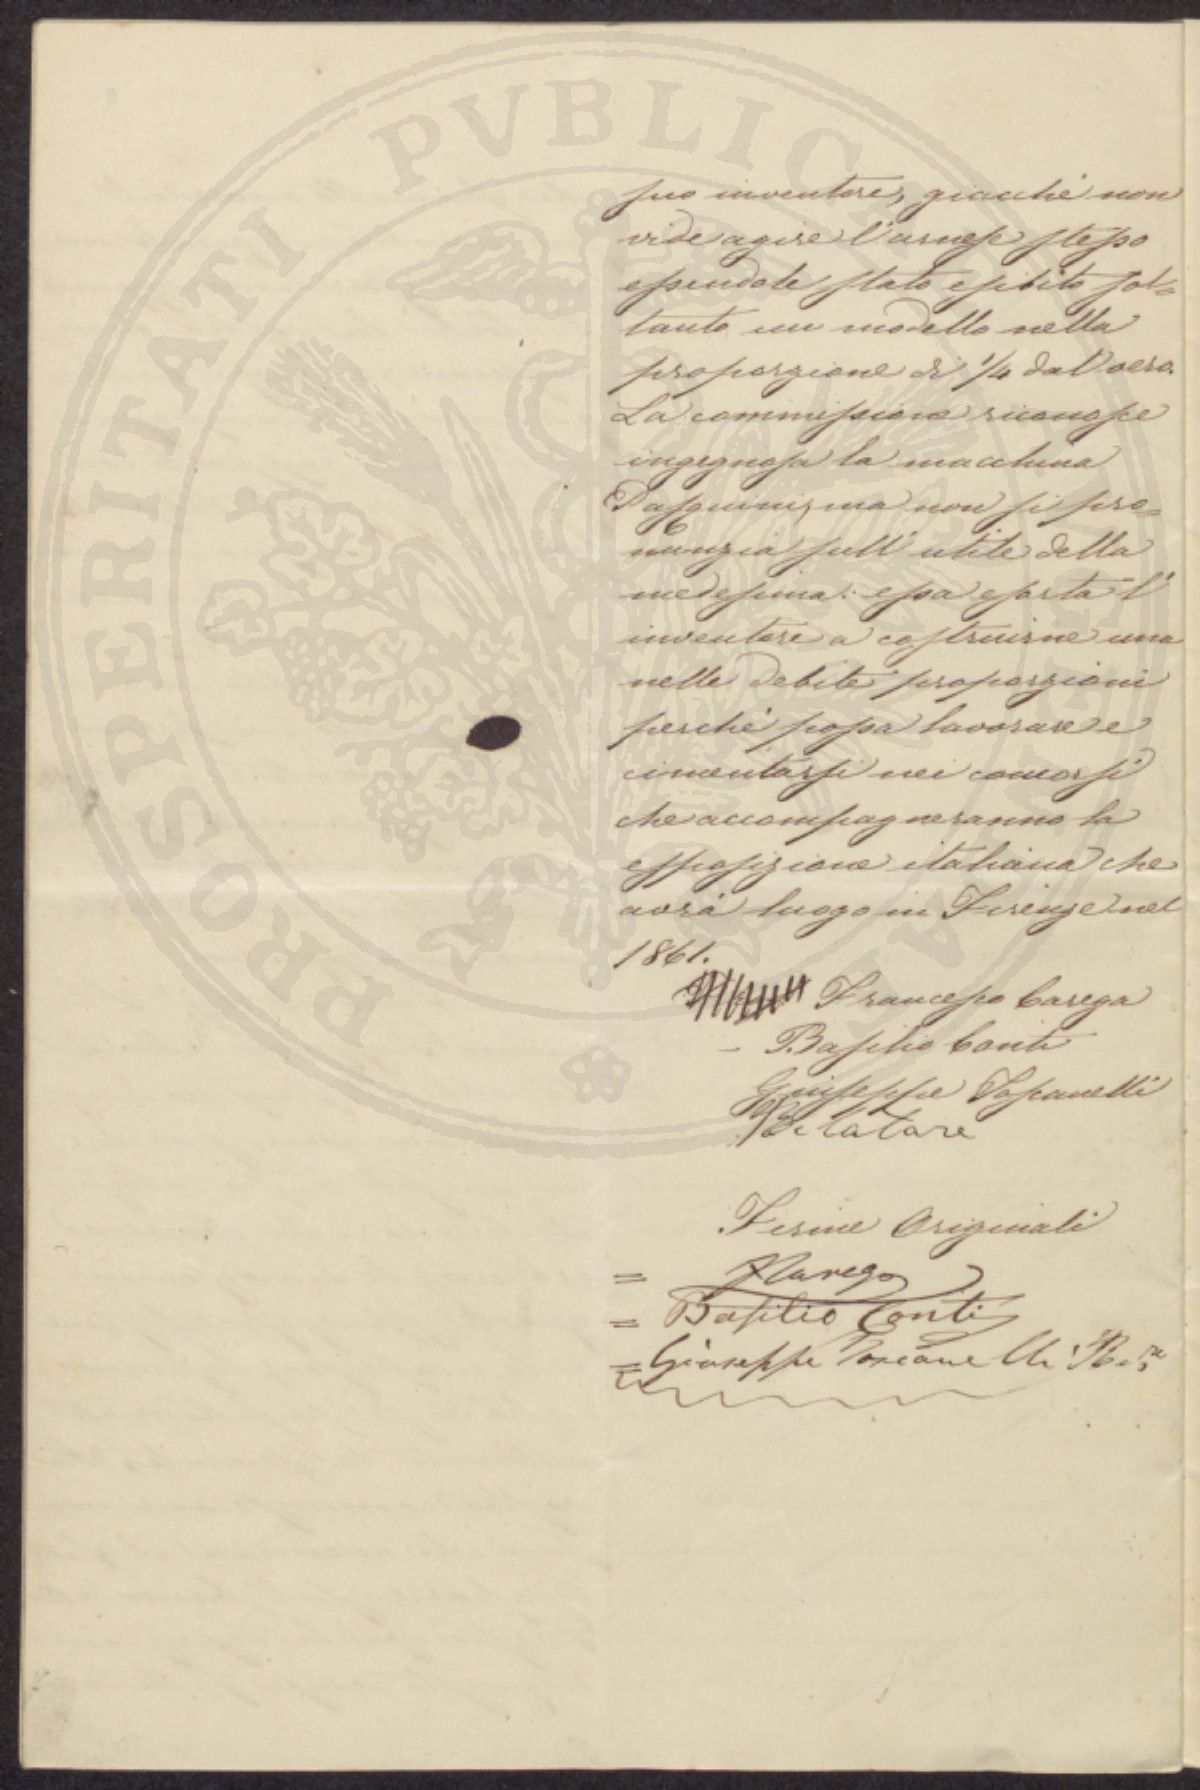 PROSPERITATI PVBLICAE
suo inventore, giacchè non
vide agire l'arnese stesso
essendole stato esibito sol=
tanto un modello nella
proporzione di 1/4 dal vero.
La commissione riconosce
ingegnosa la macchina
Pasquini, ma non si pro=
nunzia sull' utile della
medesima: essa esorta l'
inventore a costruirne una
nelle debite proporzioni
perchè possa lavorare e
cimentarsi nei concorsi
che accompagneranno la
esposizione italiana che
avrà luogo in Firenze nel
1861.
Francesco Carega
– Basilio Conti
Giuseppe Toscanelli
Relatore
Firme Originali
= FCarega
= Basilio Conti
= Giuseppe Toscanelli Rel.re